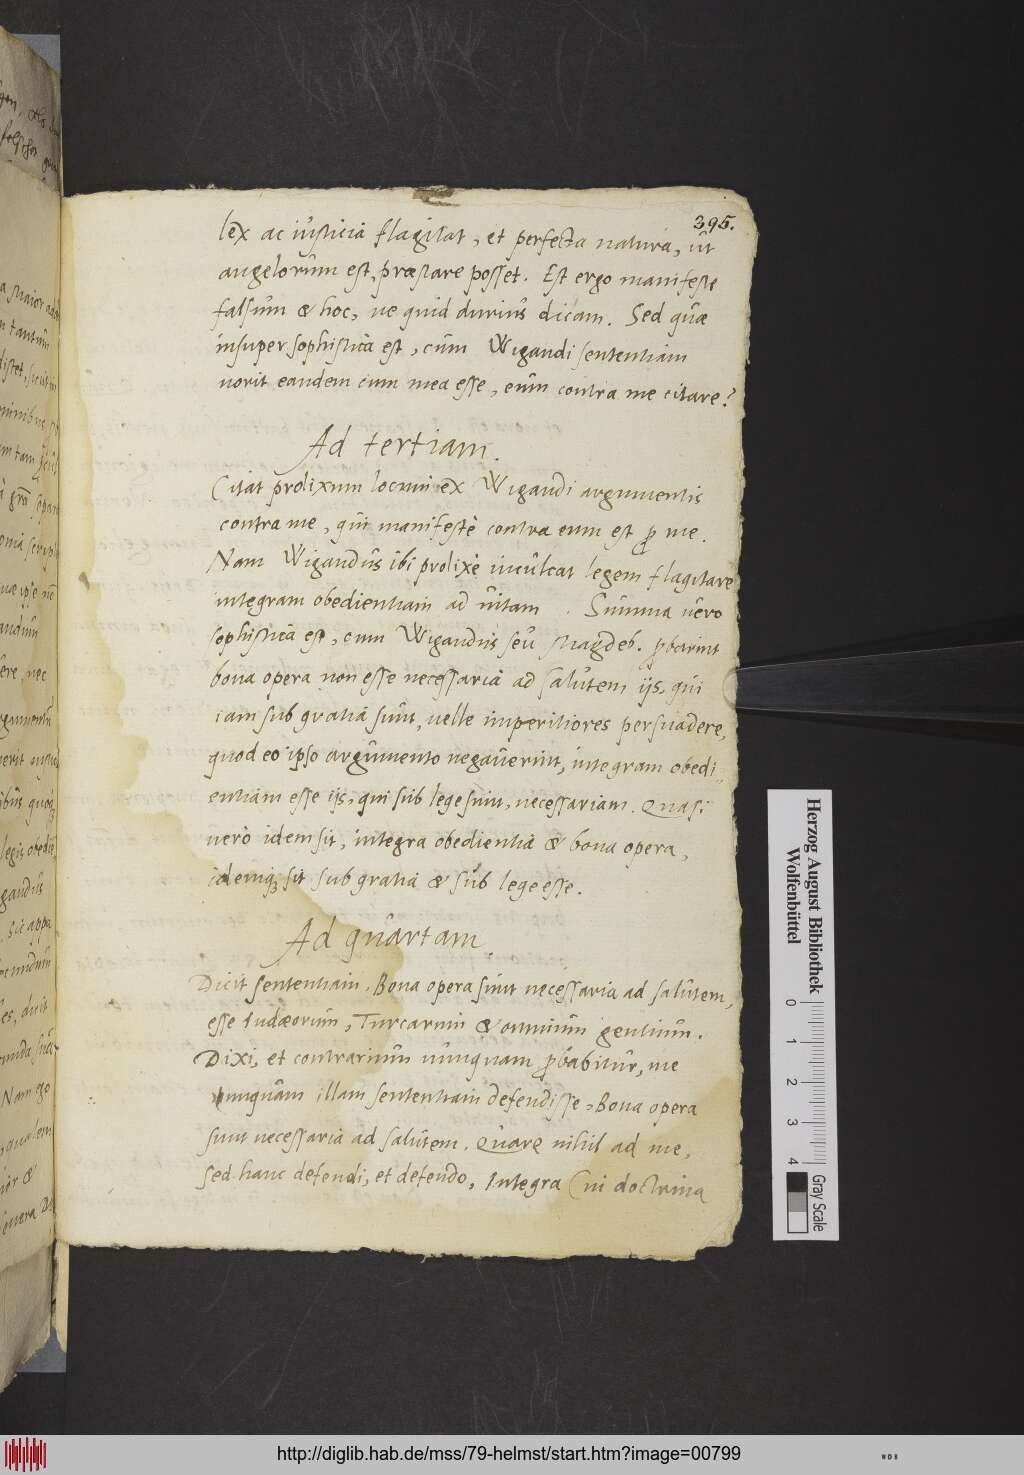 395.
lex ac iusticia flagitat, et perfecta natura, ut
angelorum est, præstare posset. Est ergo manifeste
falsum & hoc, ne quid durius dicam. Sed quæ
insuper sophistica est, cum Wigandi sententiam
norit eandem cum mea esse, eum contra me citare?
Ad tertiam.
Citat prolixum locum ex Wigandi argumentis
contra me, qui manifestè contra eum est ꝓ me.
Nam Wigandus ibi prolixè inculcat legem flagitare
integram obedientiam ad uitam. Summa uero
sophistica est, cum Wigandus seu Magdeb. ꝓbarint
bona opera non esse necessaria ad salutem ijs, qui
iam sub gratia sunt, uelle imperitiores persuadere,
quod eo ipso argumento negauerint, integram obedi-
entiam esse ijs, qui sub lege sunt, necessariam. Quasi
uerò idem sit, integra obedientia & bona opera,
idemq; sit sub gratia & sub lege esse.
Ad quartam
Dicit sententiam, Bona opera sunt necessaria ad salutem,
esse Iudæorum, Turcarum & omnium gentium.
Dixi, et contrarium nunquam ꝓbabitur, me
nunquam illam sententiam defendisse, Bona opera
sunt necessaria ad salutem. Quare nihil ad me,
sed hanc defendi, et defendo, Integra (ni doctrina
Herzog August Bibliothek
Wolfenbüttel
0 1 2 3 4
Gray Scale
http://diglib.hab.de/mss/79-helmst/start.htm?image=00799